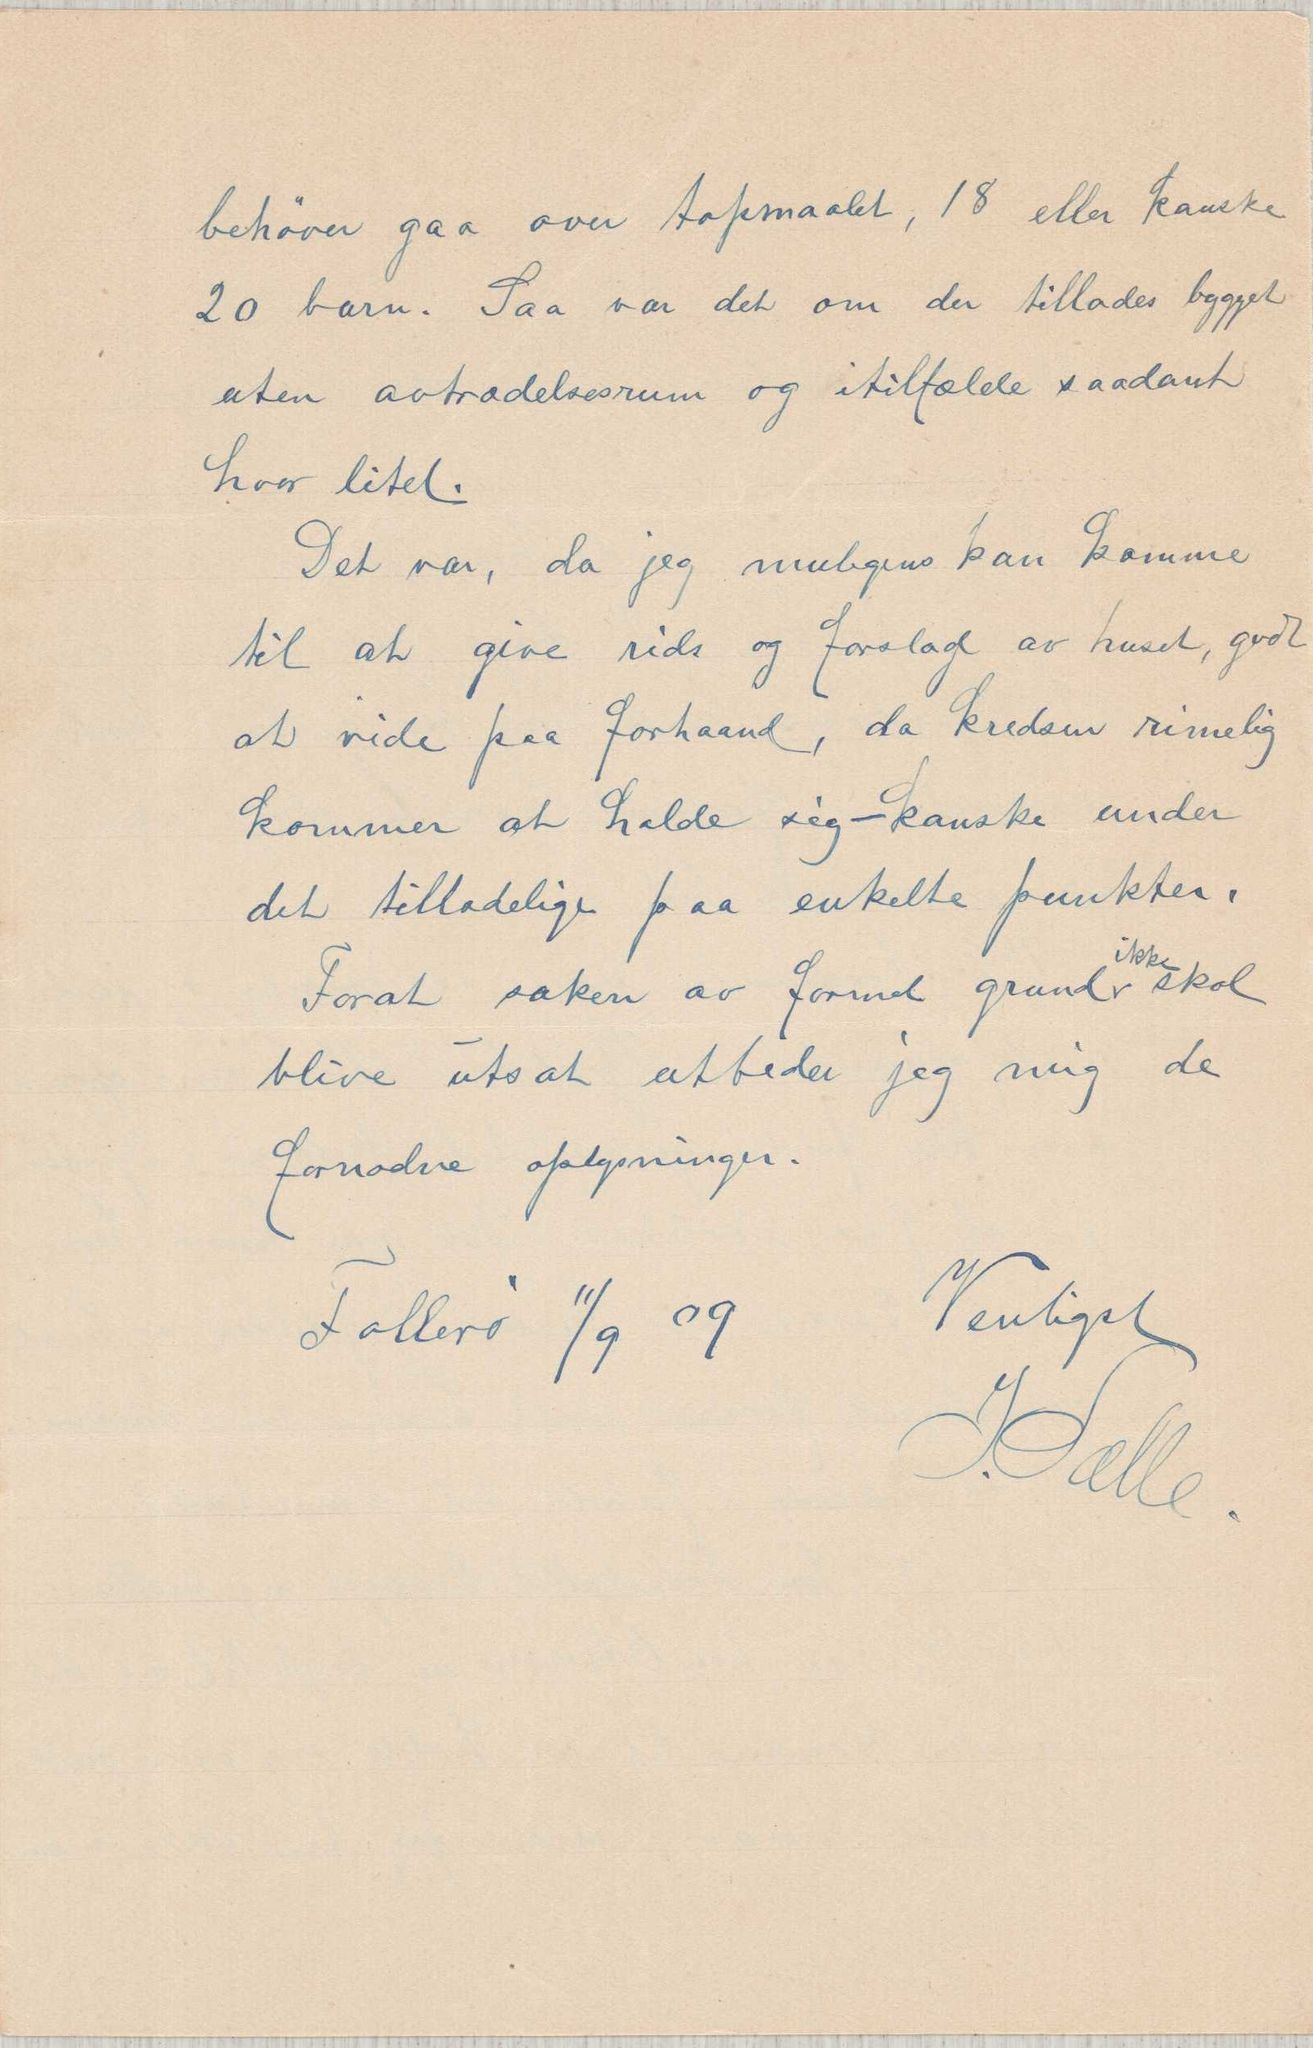 behöver gaa over topmaalet, 18 eller kanske
20 barn. Saa var det om der tillades bygget
uten avtrædelsesrum og itilfælde saadant
hvor litet.
Det var, da jeg muligens kan komme
til at give rids og forslag av huset, godt
at vide paa forhaand, da kredsen rimelig
kommer at holde sig - kanske under
det tilladelige paa enkelte punkter.
Forat saken av formel grund ikke skal
blive utsat utbeder jeg mig de
fornødne oplysninger.
Follerö 11/9 09 Venligst
J. Sælle.